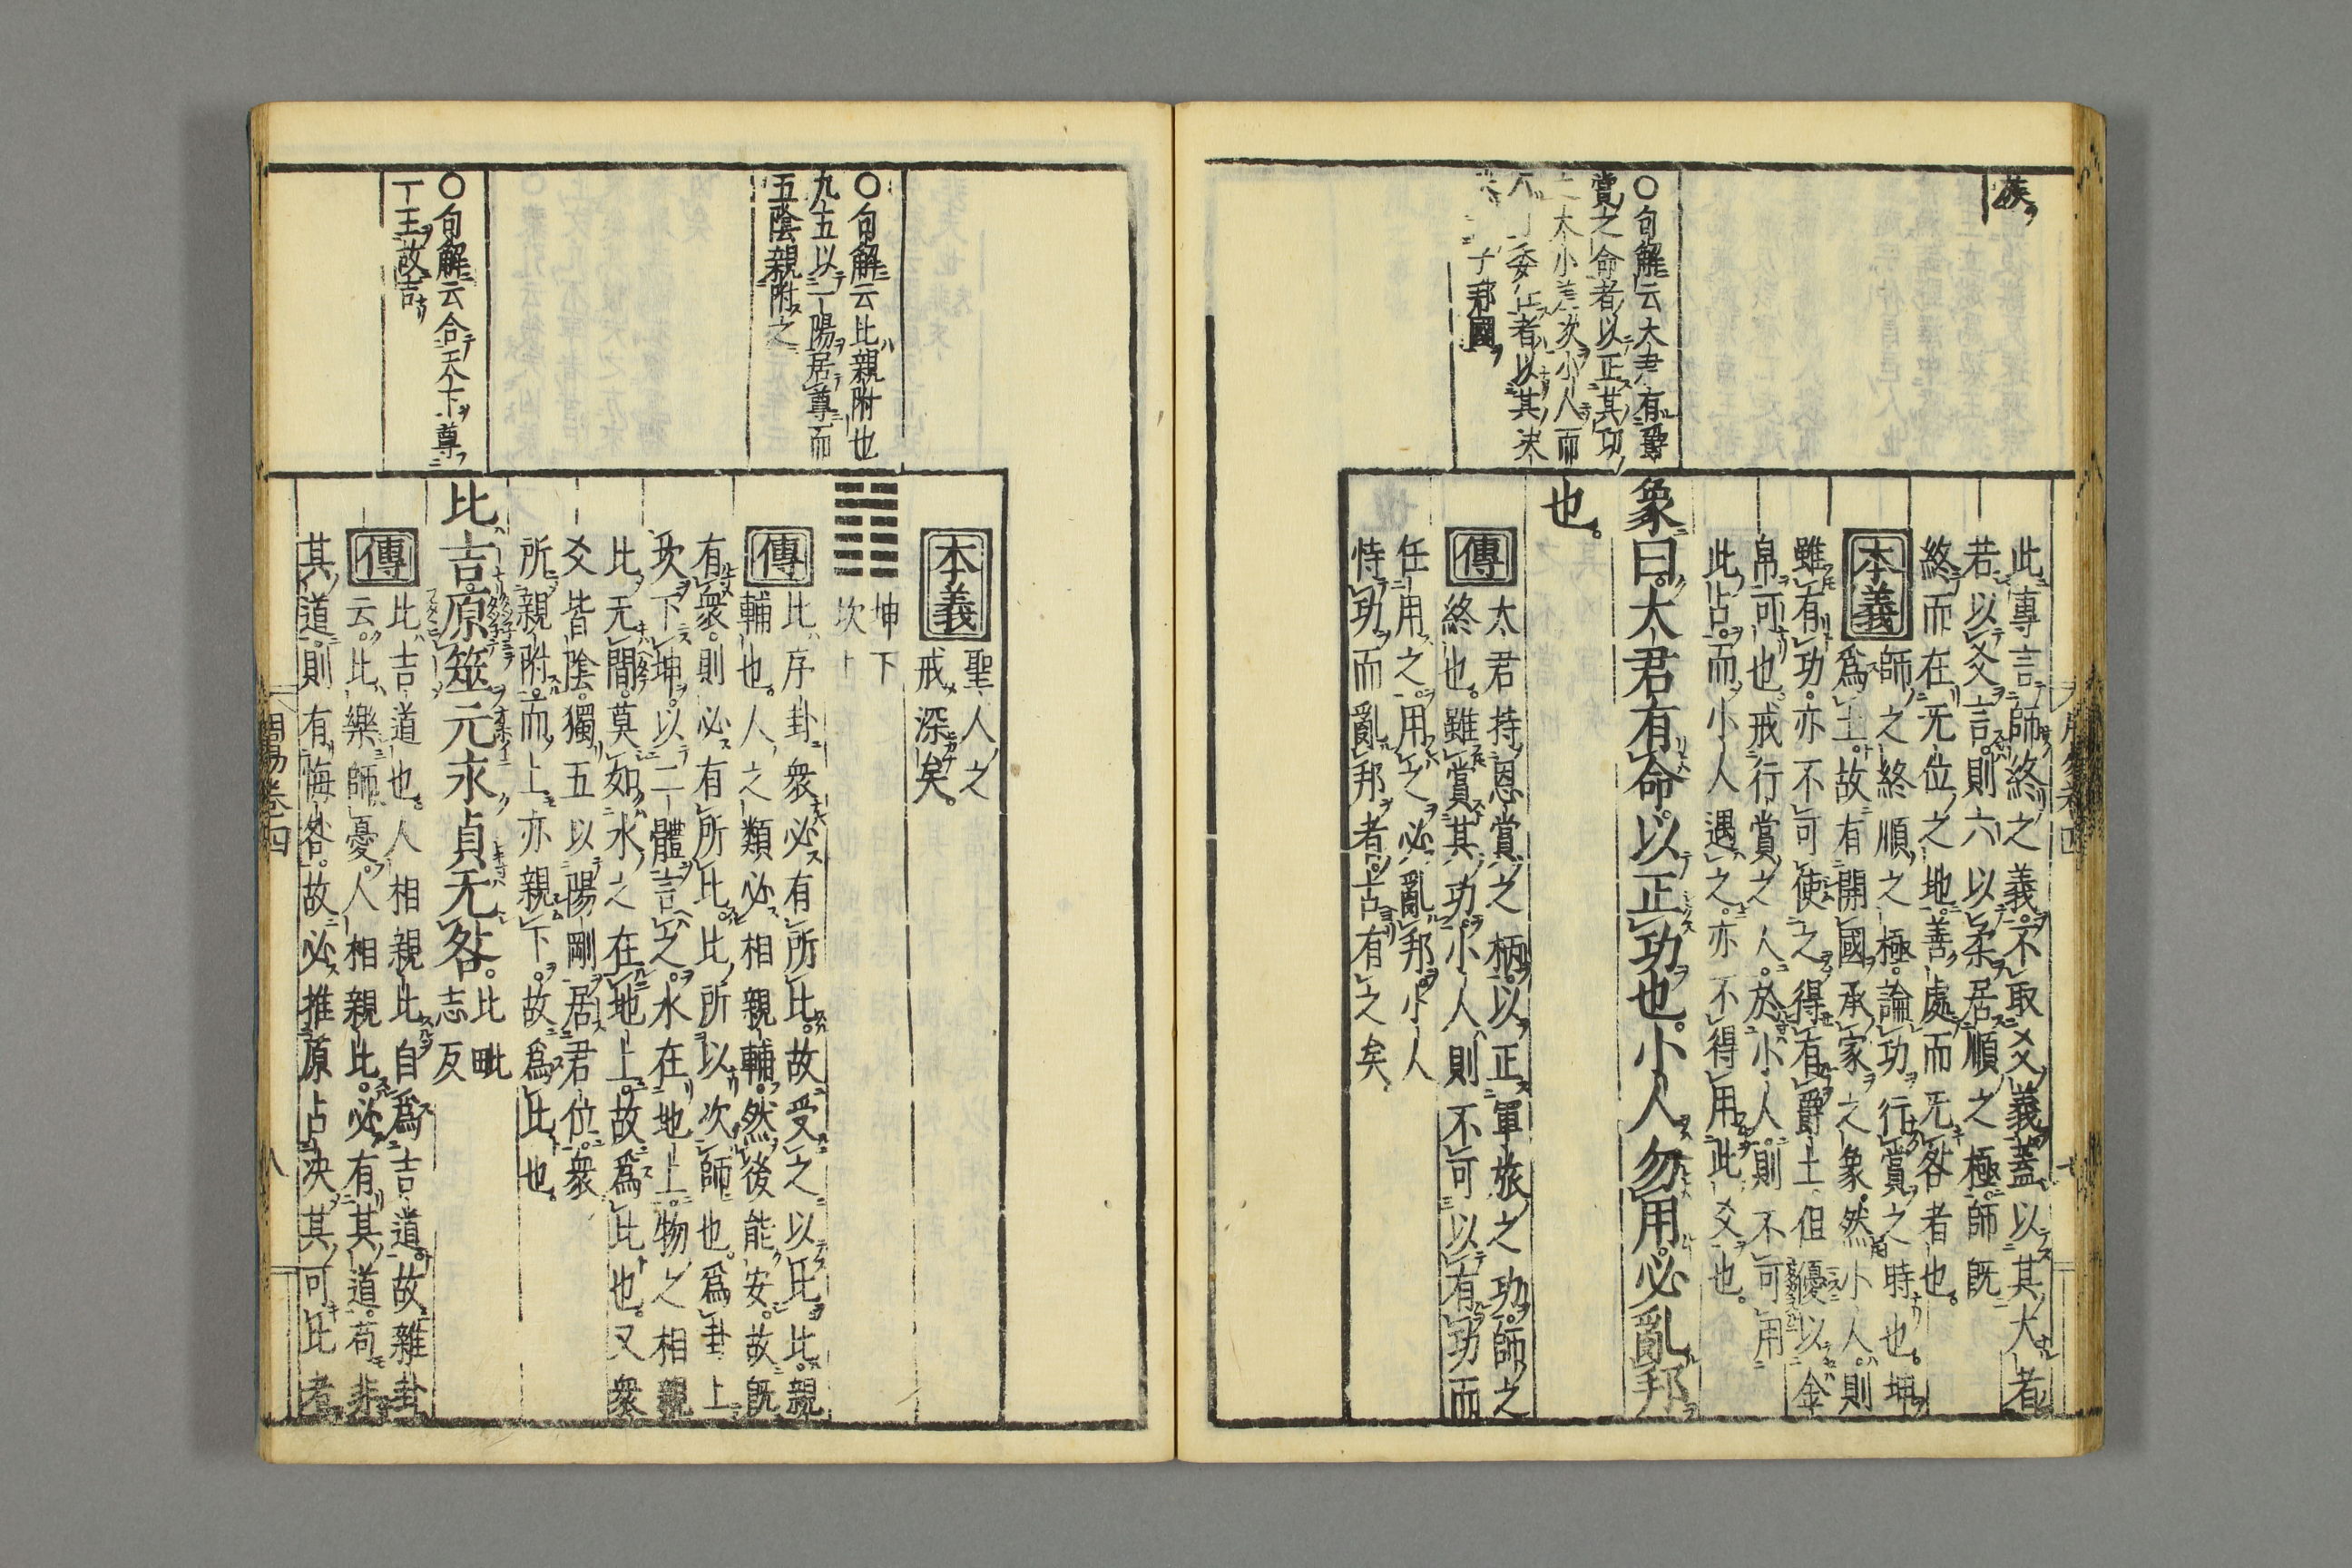 族
○句解云大君有爵
賞之命者以正其功
大小美次小人而
委任者以其
子邦國
此專言師終之義不取爻義蓋以其大者
若以爻言則六以柔居順之極師既
終而在无位之地善處而无咎者也
本義
師之終順之極論功行賞之時也坤
爲土故有開國承家之象然小人則
雖有功亦不可使之得有爵土但優以金
帛可也戒行賞之人於小人則不可用
此占而小人遇之亦不得用此爻也
象曰大君有命以正功也小人勿用必亂邦
也
傳
大君持恩賞之柄以正軍旅之功師之
終也雖賞其功小人則不可以有功而
任用之用之必亂邦小人
恃功而亂邦者古有之矣
○句解云比親附也
九五以一陽居尊而
五陰親附之
○句解云合天下尊
一王故吉
本義
聖人之
戒深矣
坤下
坎上
傳
比序卦衆必有所比故受之以比比親
輔也人之類必相親輔然後能安故既
有衆則必有所比比所以次師也爲卦上
坎下坤以二體言之水在地上物之相親
比无間莫如水之在地上故爲比也又衆
爻皆陰獨五以陽剛居君位衆
所親附而上亦親下故爲比也
比吉原筮元永貞无咎比毗
志反
傳
比吉道也人相親比自爲吉道故雜卦
云比樂師憂人相親比必有其道苟非
其道則有悔咎故必推原占决其可比者
周易卷四
八